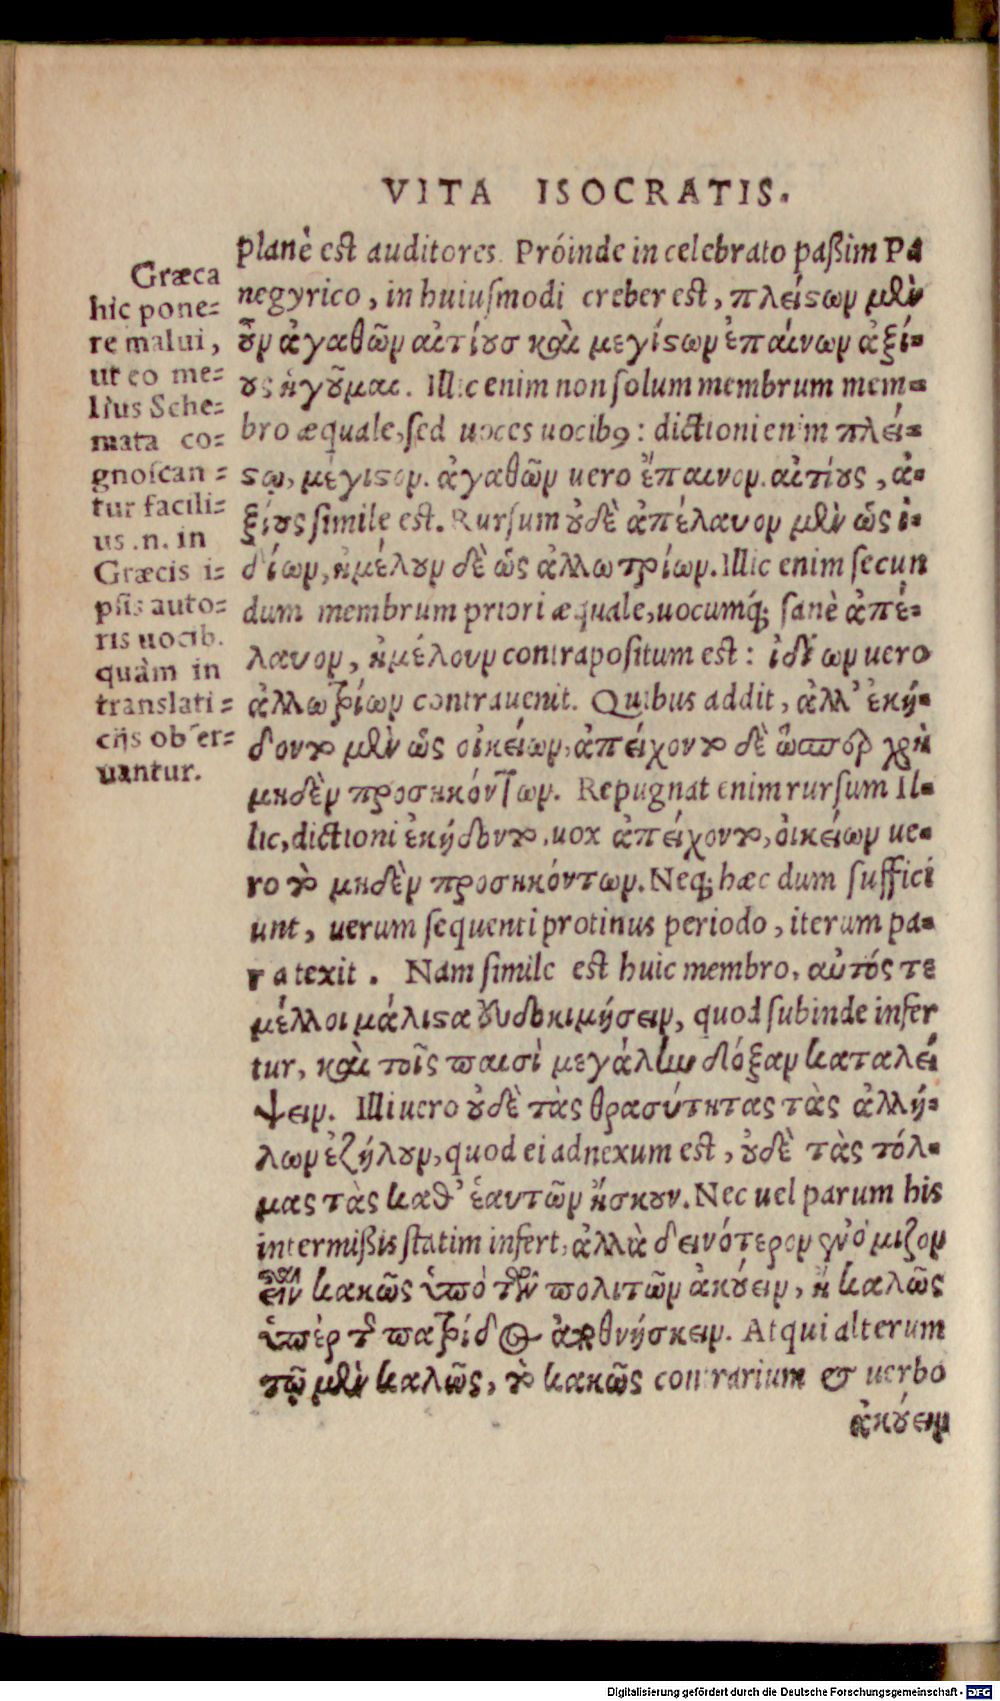 VITA ISOCRATIS.
planè est auditores. Próinde in celebrato paßim Pa
negyrico, in huiusmodi creber est, πλείςων μὲν
οὖν ἀγαθῶν αἰτίουσ καὶ μεγίςων ἐπαίνων ἀξί-
ους ἡγοῦμαι. Illic enim non solum membrum mem-
bro æquale, sed uoces uocibꝯ: dictioni enim πλεί-
ςῳ, μέγιςον. ἀγαθῶν uero ἔπαινον. αἰτίους, ἀ-
ξίους simile est. Rursum οὐδὲ ἀπέλαυον μὲν ὡς ἰ-
δίων, ἠμέλουν δὲ ὡς ἀλλωτρίων. Illic enim secun
dum membrum priori æquale, uocumq́; sanè ἀπέ-
λαυον, ἠμέλουν contrapositum est: ἰδίων uero
ἀλλωτρίων contrauenit. Quibus addit, ἀλλ' ἐκή-
δοντο μὲν ὡς οἰκείων, ἀπείχοντο δὲ ὥσπερ χρὴ
μηδὲν προσηκόντων. Repugnat enim rursum Il-
lic, dictioni ἐκήδοντο, uox ἀπείχοντο, οἰκείων ue-
ro τὸ μηδὲν προσηκόντων. Neq; hæc dum suffici
unt, uerum sequenti protinus periodo, iterum pa-
ra texit. Nam simile est huic membro, αὐτός τε
μέλλοι μάλιςα εὐδοκιμήσειν, quod subinde infer
tur, καὶ τοῖς παισὶ μεγάλην δόξαν καταλεί
ψειν. Illi uero οὐδὲ τὰς θρασύτητας τὰς ἀλλή-
λων ἐζήλουν, quod ei adnexum est, οὐδὲ τὰς τόλ-
μας τὰς καθ' ἑαυτῶν ἤσκουν. Nec uel parum his
intermißis statim infert, ἀλλὰ δεινότερον ἐνόμιζον
εἶναι κακῶς ὑπὸ τῶν πολιτῶν ἀκούειν, ἢ καλῶς
ὑπὲρ τῆς πατρίδος ἀποθνήσκειν. Atqui alterum
τῷ μὲν καλῶς, τὸ κακῶς contrarium & uerbo
ἀκούειν
Græca
hic pone-
re malui,
ut eo me-
lius Sche-
mata co-
gnoscan-
tur facili-
us .n. in
Græcis i-
psis auto-
ris uocib.
quàm in
translati-
cijs obser-
uantur.
Digitalisierung gefördert durch die Deutsche Forschungsgemeinschaft - DFG